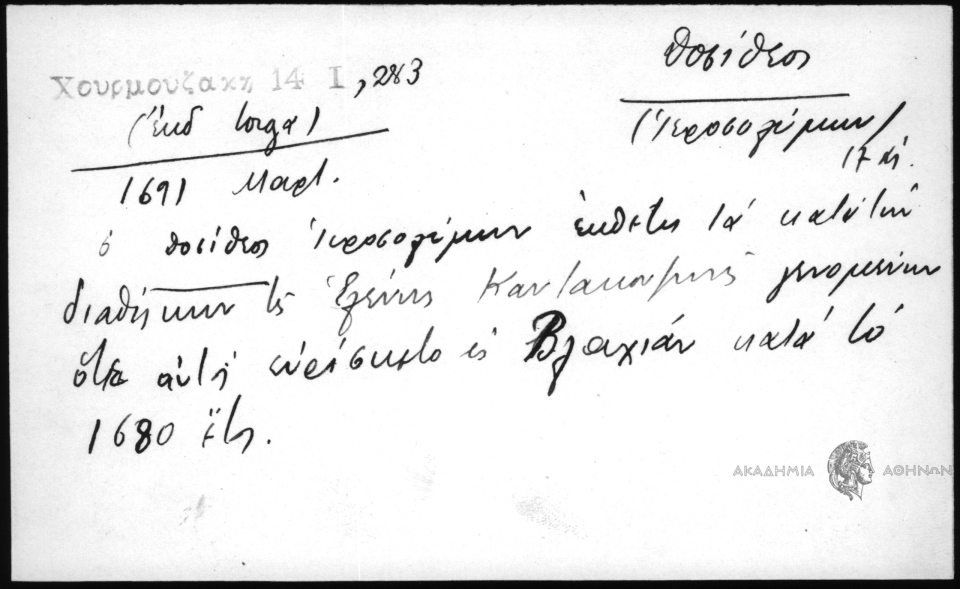 Δοσίθεος
Χουρμουζάκη 14 I, 283
(Ἱεροσολύμων)
(ἔκδ Iorga)
17 αἰ.
1691 Μαρτ.
ὁ Δοσίθεος Ἱεροσολύμων ἐκθέτει τὰ κατὰ τὴν
διαθήκην τῆς Ἑλένης Καντακουζηνῆς γενομένην
ὅτε αὐτὴ εὑρίσκετο εἰς Βλαχίαν κατὰ τὸ
1680 ἔτος.
ΑΚΑΔΗΜΙΑ ΑΘΗΝΩΝ